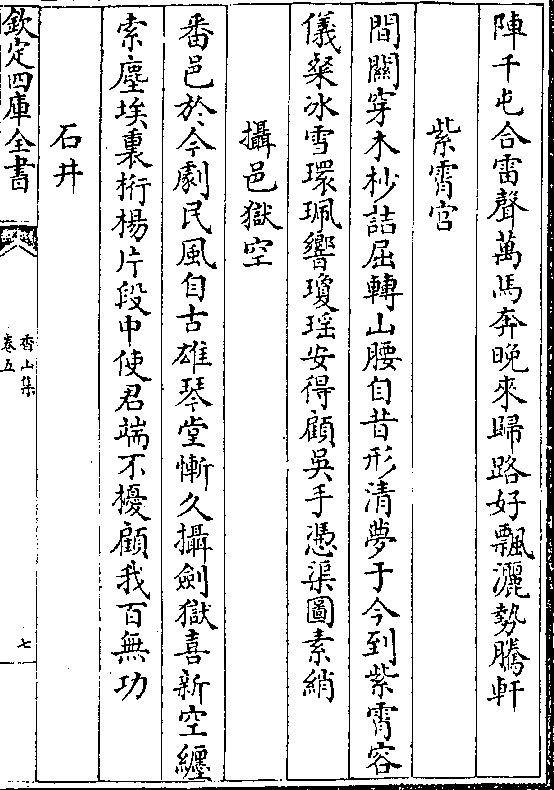 陣千屯合雷聲萬馬奔晚來歸路好飄灑勢騰軒
紫霄宫
間關穿木杪詰屈轉山腰自昔形清夢于今到紫霄容
儀粲冰雪環珮響瓊瑶安得顧吳手憑渠圖素綃
攝邑獄空
番邑於今劇民風自古雄琴堂慚久攝劍獄喜新空纒
索塵埃裏桁楊片段中使君端不擾顧我百無功
石井
欽定四庫全書
香山集
卷五
七